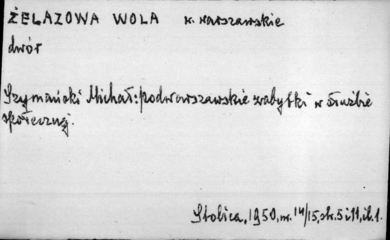 ŻELAZOWA WOLA w. warszawskie
dwór
Szymański Michał: podwarszawskie zabytki w służbie
społecznej.
Stolica, 1950, nr. 14/15, str. 5 i 11, il. 1.